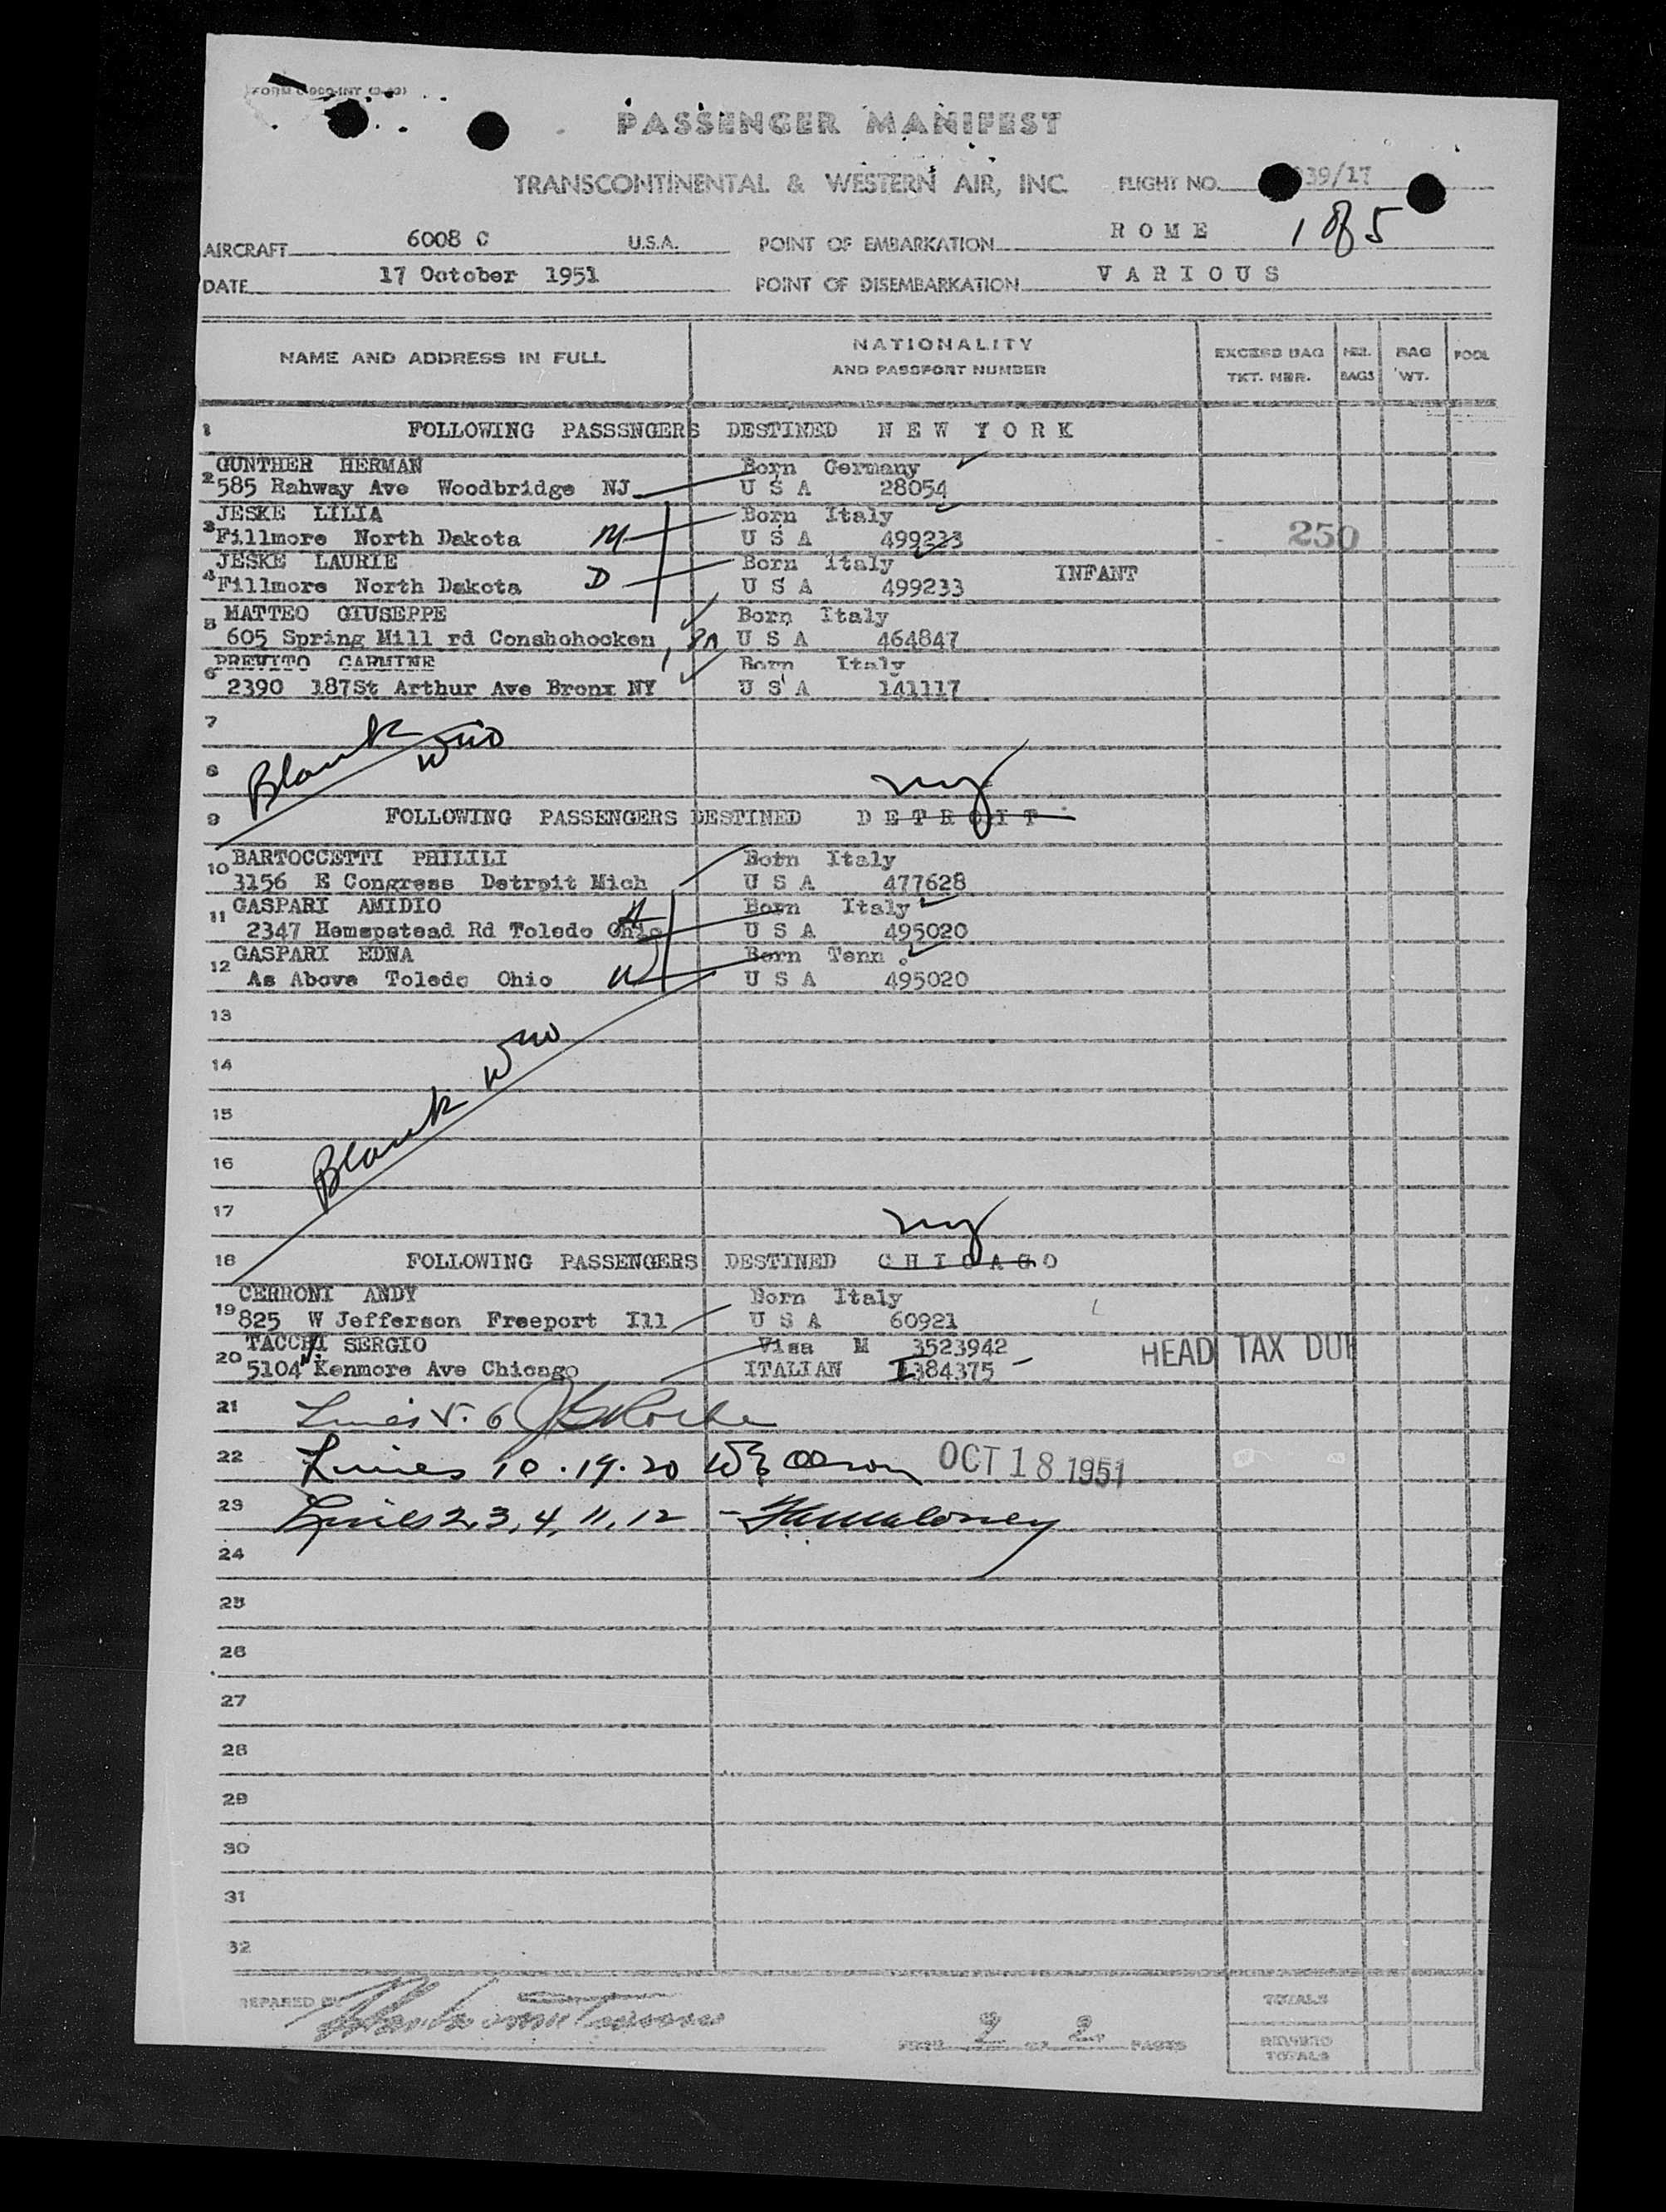 FORM
PASSENGER MANIFEST
TRANSCONTINENTAL & WESTERN AIR, INC. FLIGHT NO. 39/17
1 of 5
AIRCRAFT 6008 C U.S.A. POINT OF EMBARKATION R O M E
DATE 17 October 1951 POINT OF DISEMBARKATION V A R I O U S
NAME AND ADDRESS IN FULL NATIONALITY AND PASSPORT NUMBER EXCESS BAG TKT. NBR. NBR. BAGS BAG WT. POOL
1 FOLLOWING PASSSNGERS DESTINED N E W Y O R K
GUNTHER HERMAN Born Germany
2 585 Rahway Ave Woodbridge NJ U S A 28054
JESKE LILIA Born Italy
3 Fillmore North Dakota M U S A 499233 250
JESKE LAURIE Born italy INFANT
4 Fillmore North Dakota D U S A 499233
MATTEO GIUSEPPE Born Italy
5 605 Spring Mill rd Conshohocken, PA U S A 464847
PREVITO CARMINE Born Italy
6 2390 187St Arthur Ave Bronx NY U S A 141117
7
Blank
8
NY
9 FOLLOWING PASSENGERS DESTINED D E T R O I T
BARTOCCETTI PHILILI Born Italy
10 3156 E Congress Detroit Mich U S A 477628
GASPARI AMIDIO H Born Italy
11 2347 Hemepstead Rd Toledo Ohio U S A 495020
GASPARI EDNA Born Tenn.
12 As Above Toledo Ohio W U S A 495020
13
14
15
Blank
16
17
NY
18 FOLLOWING PASSENGERS DESTINED C H I C A G O
CERRONI ANDY Born Italy
19 825 W Jefferson Freeport Ill U S A 60921
TACCHI SERGIO Visa M 3523942 HEAD TAX DUE
20 5104 N. Kenmore Ave Chicago ITALIAN I384375
21 Lines 5.6
22 Lines 10.19.20 OCT 18 1951
23 Lines 2, 3, 4, 11, 12 - Maloney
24
25
26
27
28
29
30
31
32
PREPARED BY
PAGE 2 OF 2 PAGES
TOTALS
REVISED TOTALS